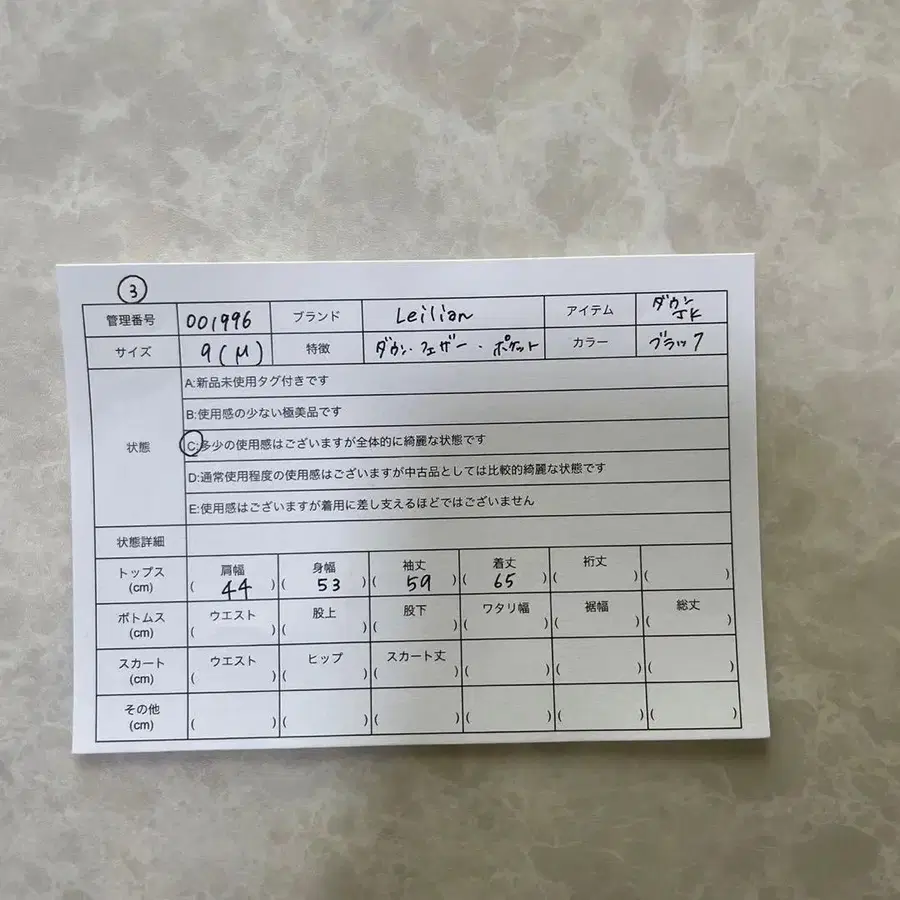 ③
管理番号 001996 ブランド Leilian アイテム ダウンJK
サイズ 9(M) 特徴 ダウン・フェザー・ポケット カラー ブラック
状態
A:新品未使用タグ付きです
B:使用感の少ない極美品です
C:多少の使用感はございますが全体的に綺麗な状態です
D:通常使用程度の使用感はございますが中古品としては比較的綺麗な状態です
E:使用感はございますが着用に差し支えるほどではございません
状態詳細
トップス(cm) 肩幅(44) 身幅(53) 袖丈(59) 着丈(65) 裄丈( ) ( )
ボトムス(cm) ウエスト( ) 股上( ) 股下( ) ワタリ幅( ) 裾幅( ) 総丈( )
スカート(cm) ウエスト( ) ヒップ( ) スカート丈( ) ( ) ( ) ( )
その他(cm) ( ) ( ) ( ) ( ) ( ) ( )